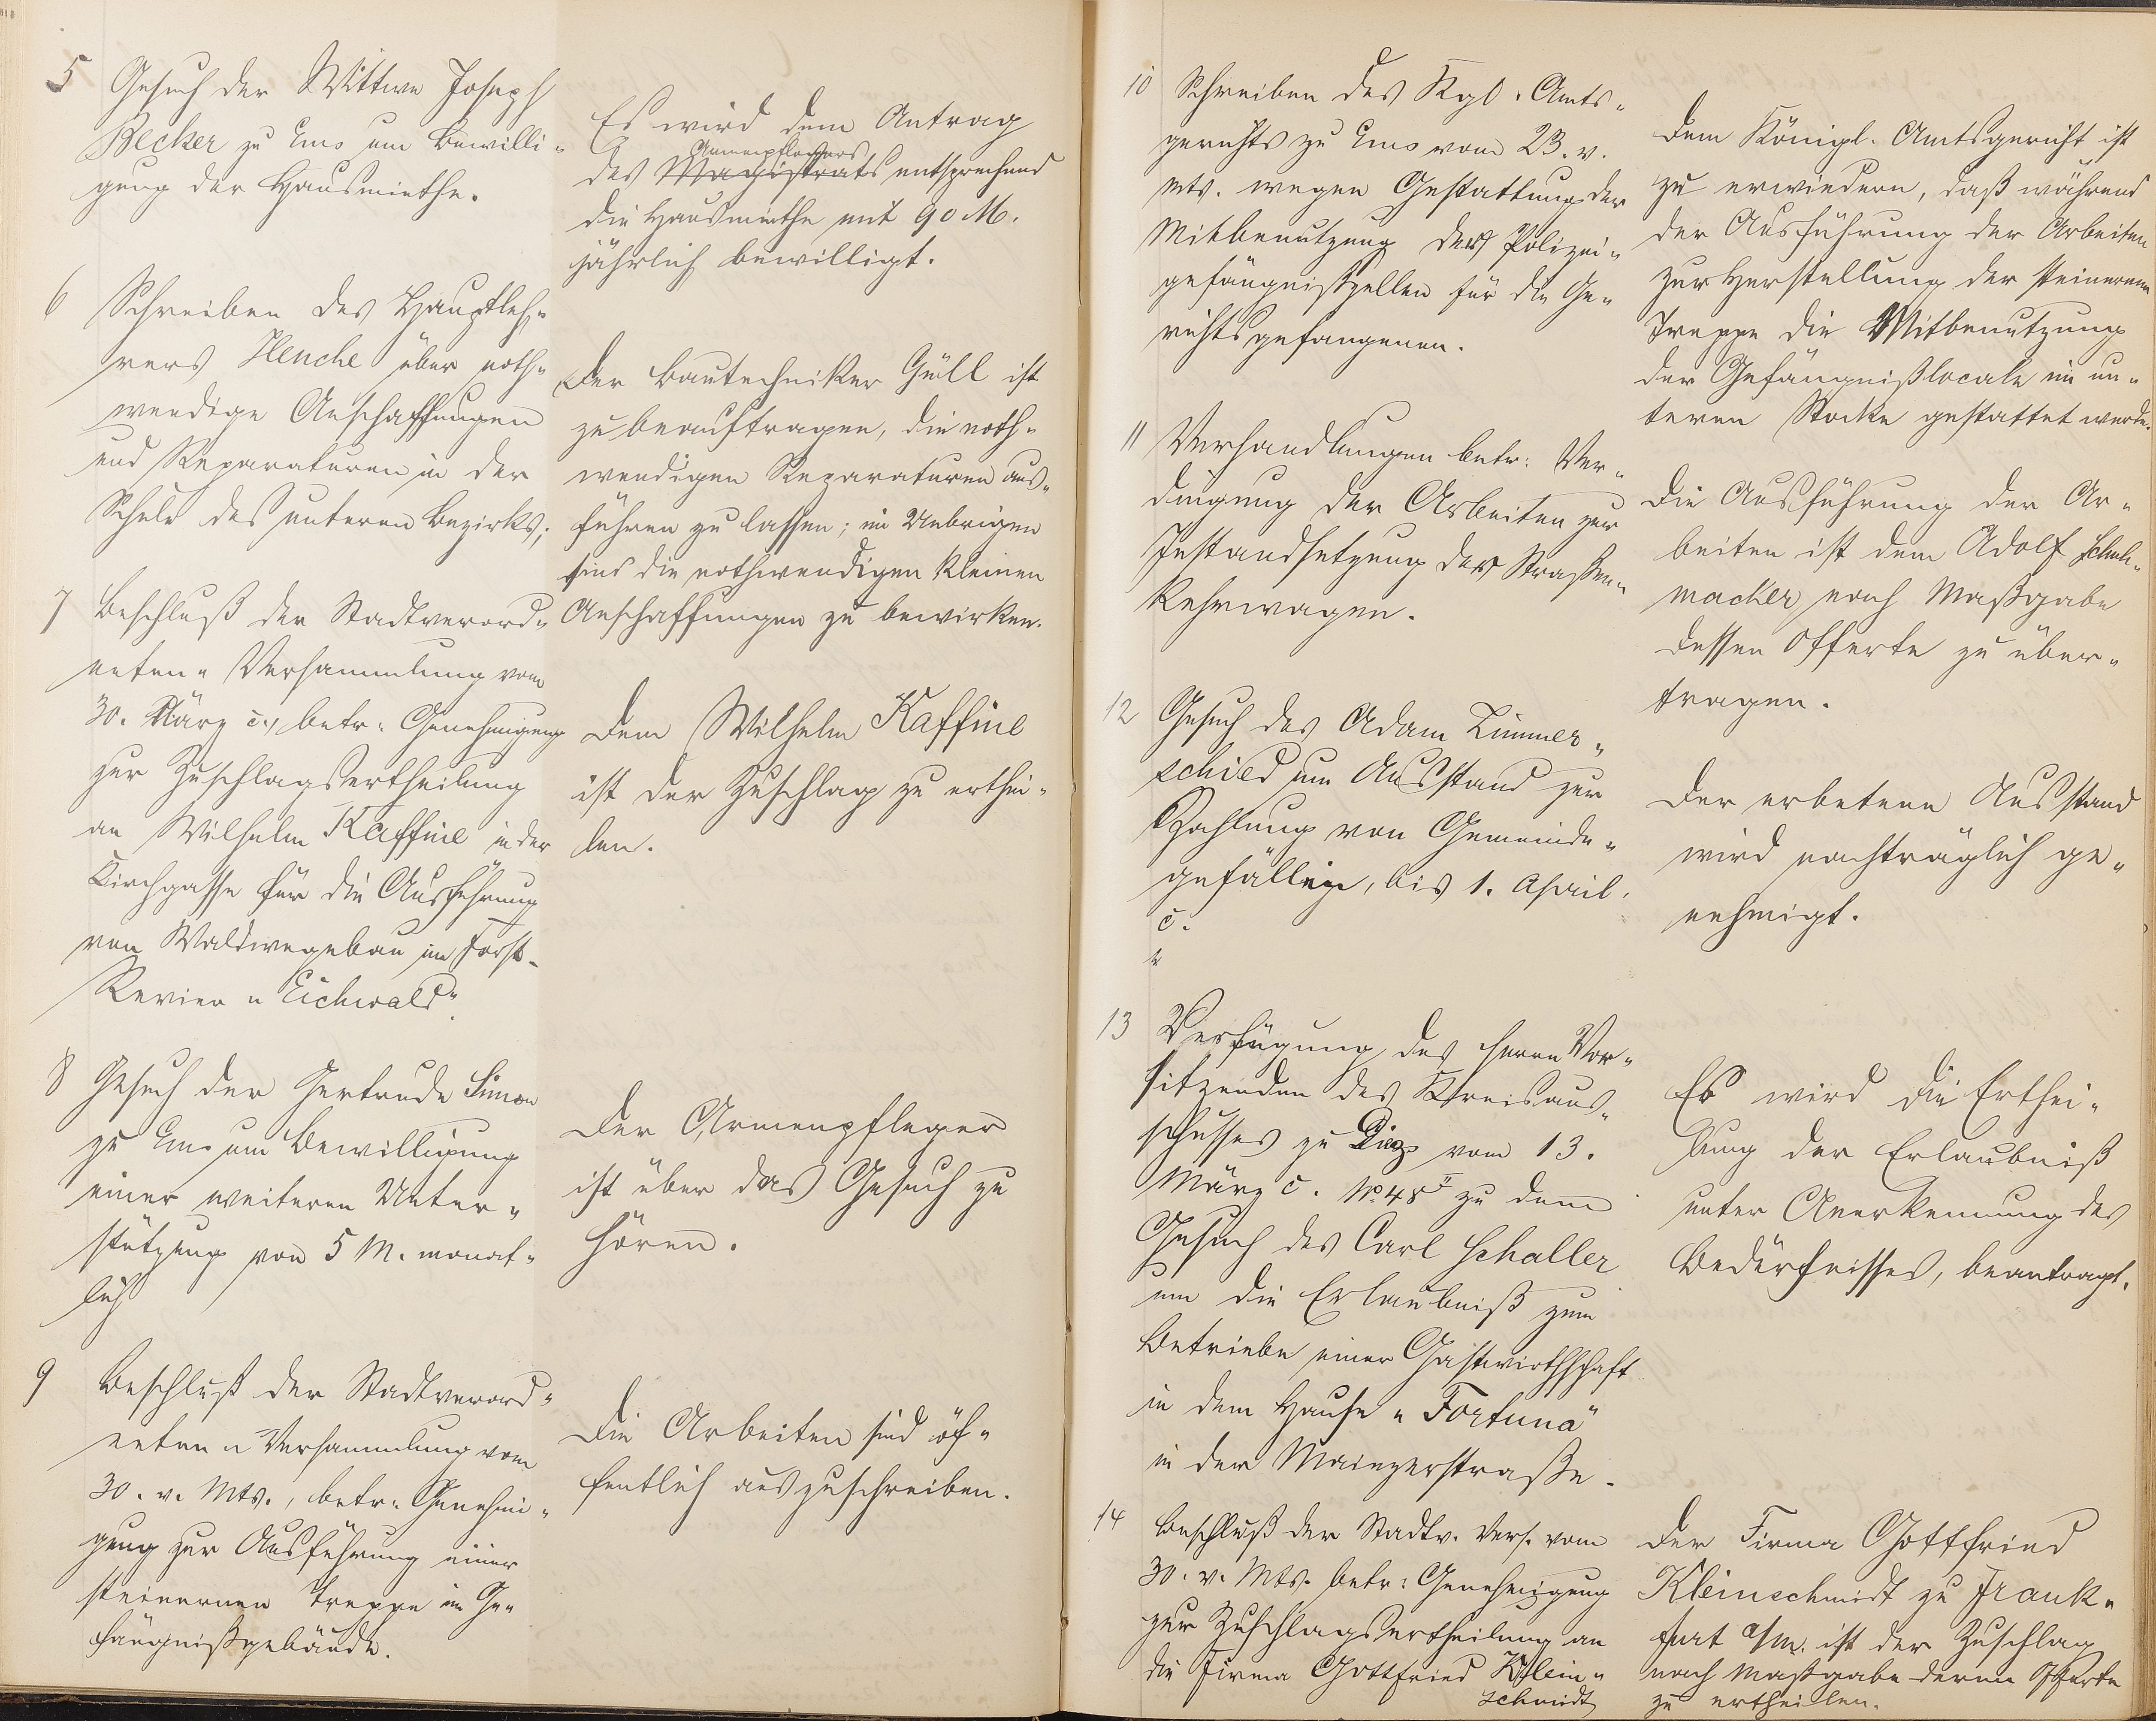 5 Gesuch der Wittwe Joseph
Becker zu Ems um Bewilli-
gung der Hausmiethe.
Es wird dem Antrag
Armenpflegers
des Magistrats entsprechend
die Hausmiethe mit 90 M.
jährlich bewilligt.
6 Schreiben des Hauptleh-
rers Henche über noth-
wendige Anschaffungen
und Reparaturen in der
Schule des unteren Bezirks;
Der Bautechniker Güll ist
zu beauftragen, die noth-
wendigen Reparaturen aus-
führen zu lassen; im Uebrigen
sind die nothwendigen kleinen
Anschaffungen zu bewirken.
7 Beschluß der Stadtverord-
neten-Versammlung vom
30. März c., betr. Genehmigung
zur Zuschlagsertheilung
an Wilhelm Kaffine in der
Kirchgasse für die Ausführung
von Waldwegebau im Forst-
Revier "Eichwald".
Dem Wilhelm Kaffine
ist der Zuschlag zu erthei-
len.
8 Gesuch der Gertrude Simon
zu Ems um Bewilligung
einer weiteren Unter-
stützung von 5 M. monat-
lich
Der Armenpfleger
ist über das Gesuch zu
hören.
9 Beschluß der Stadtverord-
neten-Versammlung vom
30. v. Mts., betr. Genehmi-
gung zur Ausführung einer
steinernen Treppe im Ge-
fängnißgebäude.
Die Arbeiten sind öf-
fentlich auszuschreiben.
10 Schreiben des Kgl. Amts-
gerichts zu Ems vom 23. v.
Mts. wegen Gestattung der
Mitbenutzung der Polizei-
gefängnißzellen für die Ge-
richtsgefangenen.
Dem Königl. Amtsgericht ist
zu erwiedern, daß während
der Ausführung der Arbeiten
zur Herstellung der steinernen
Treppe die Mitbenutzung
der Gefängnißlocale im un-
teren Stocke gestattet werde.
11 Verhandlungen betr. Ver-
dingung der Arbeiten zur
Instandsetzung der Straßen-
kehrwagen.
Die Ausführung der Ar-
beiten ist dem Adolf Schuh-
macher nach Maßgabe
dessen Offerte zu über-
tragen.
12 Gesuch des Adam Limmer-
schied um Ausstand zur
Zahlung von Gemeinde-
gefällen, bis 1. April
c.
Der erbetene Ausstand
wird nachträglich ge-
nehmigt.
13 Verfügung des Herrn Vor-
sitzenden des Kreisaus-
schusses zu Diez vom 13.
März c. No. 48 I zu dem
Gesuch des Carl Schaller
um die Erlaubniß zum
Betriebe einer Gastwirthschaft
in dem Hause "Fortuna"
in der Mainzerstraße.
Es wird die Erthei-
lung der Erlaubniß
unter Anerkennung des
Bedürfnisses, beantragt.
14 Beschluß der Stadtv. Vers. vom
30. v. Mts. betr. Genehmigung
zur Zuschlagsertheilung an
die Firma Gottfried Klein-
schmidt
Der Firma Gottfried
Kleinschmidt zu Frank-
furt a/m. ist der Zuschlag
nach Maßgabe deren Offerte
zu ertheilen.